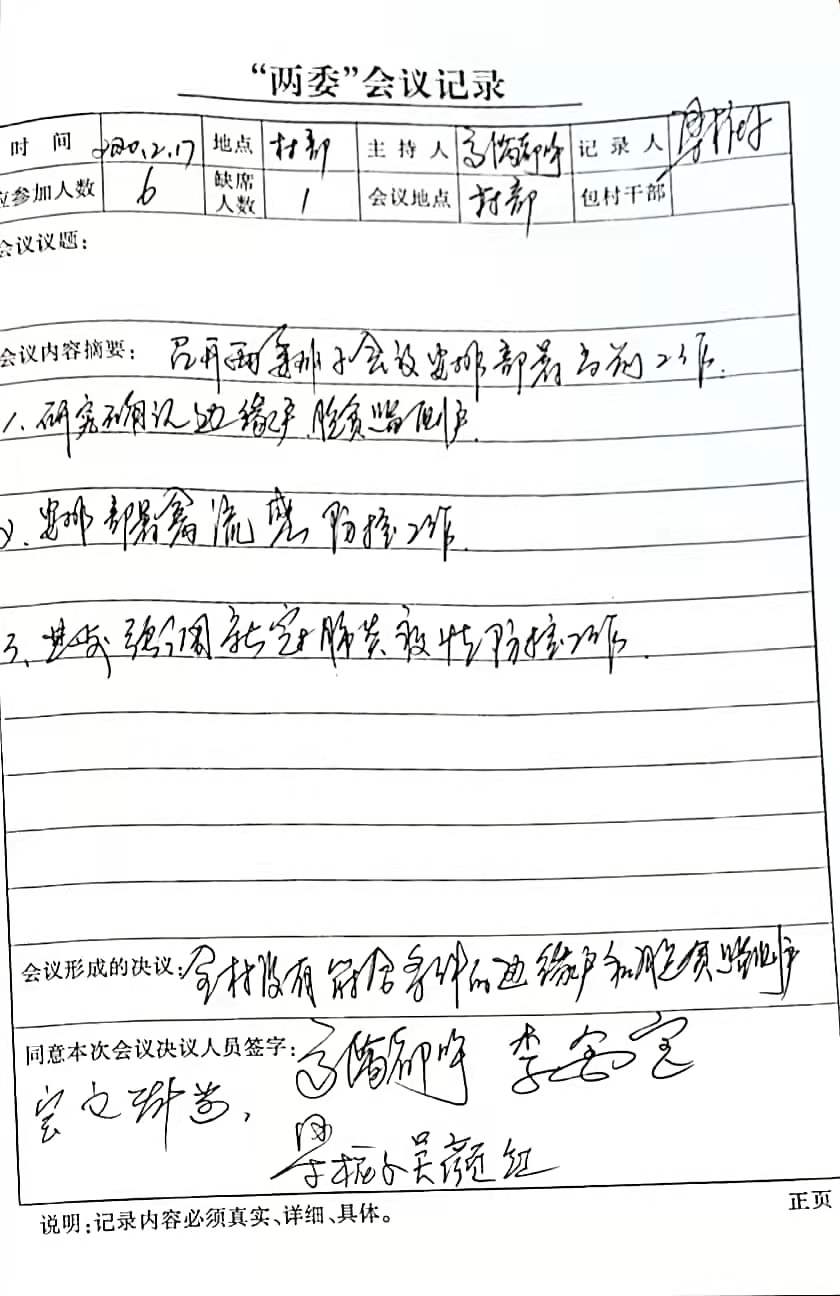 “两委”会议记录
时 间 2020.2.17 地点 村部 主 持 人 记 录 人
应参加人数 6 缺席人数 1 会议地点 村部 包村干部
会议议题：
会议内容摘要： 召开两委班子会议安排部署当前工作.
1.研究确认边缘户,脱贫监测户.
2.安排部署禽流感防控工作.
3.其次强调新冠肺炎疫情防控工作.
会议形成的决议：全村没有符合条件的边缘户和脱贫监测户
同意本次会议决议人员签字： 李金宝
吴颜红
说明：记录内容必须真实、详细、具体。
正页